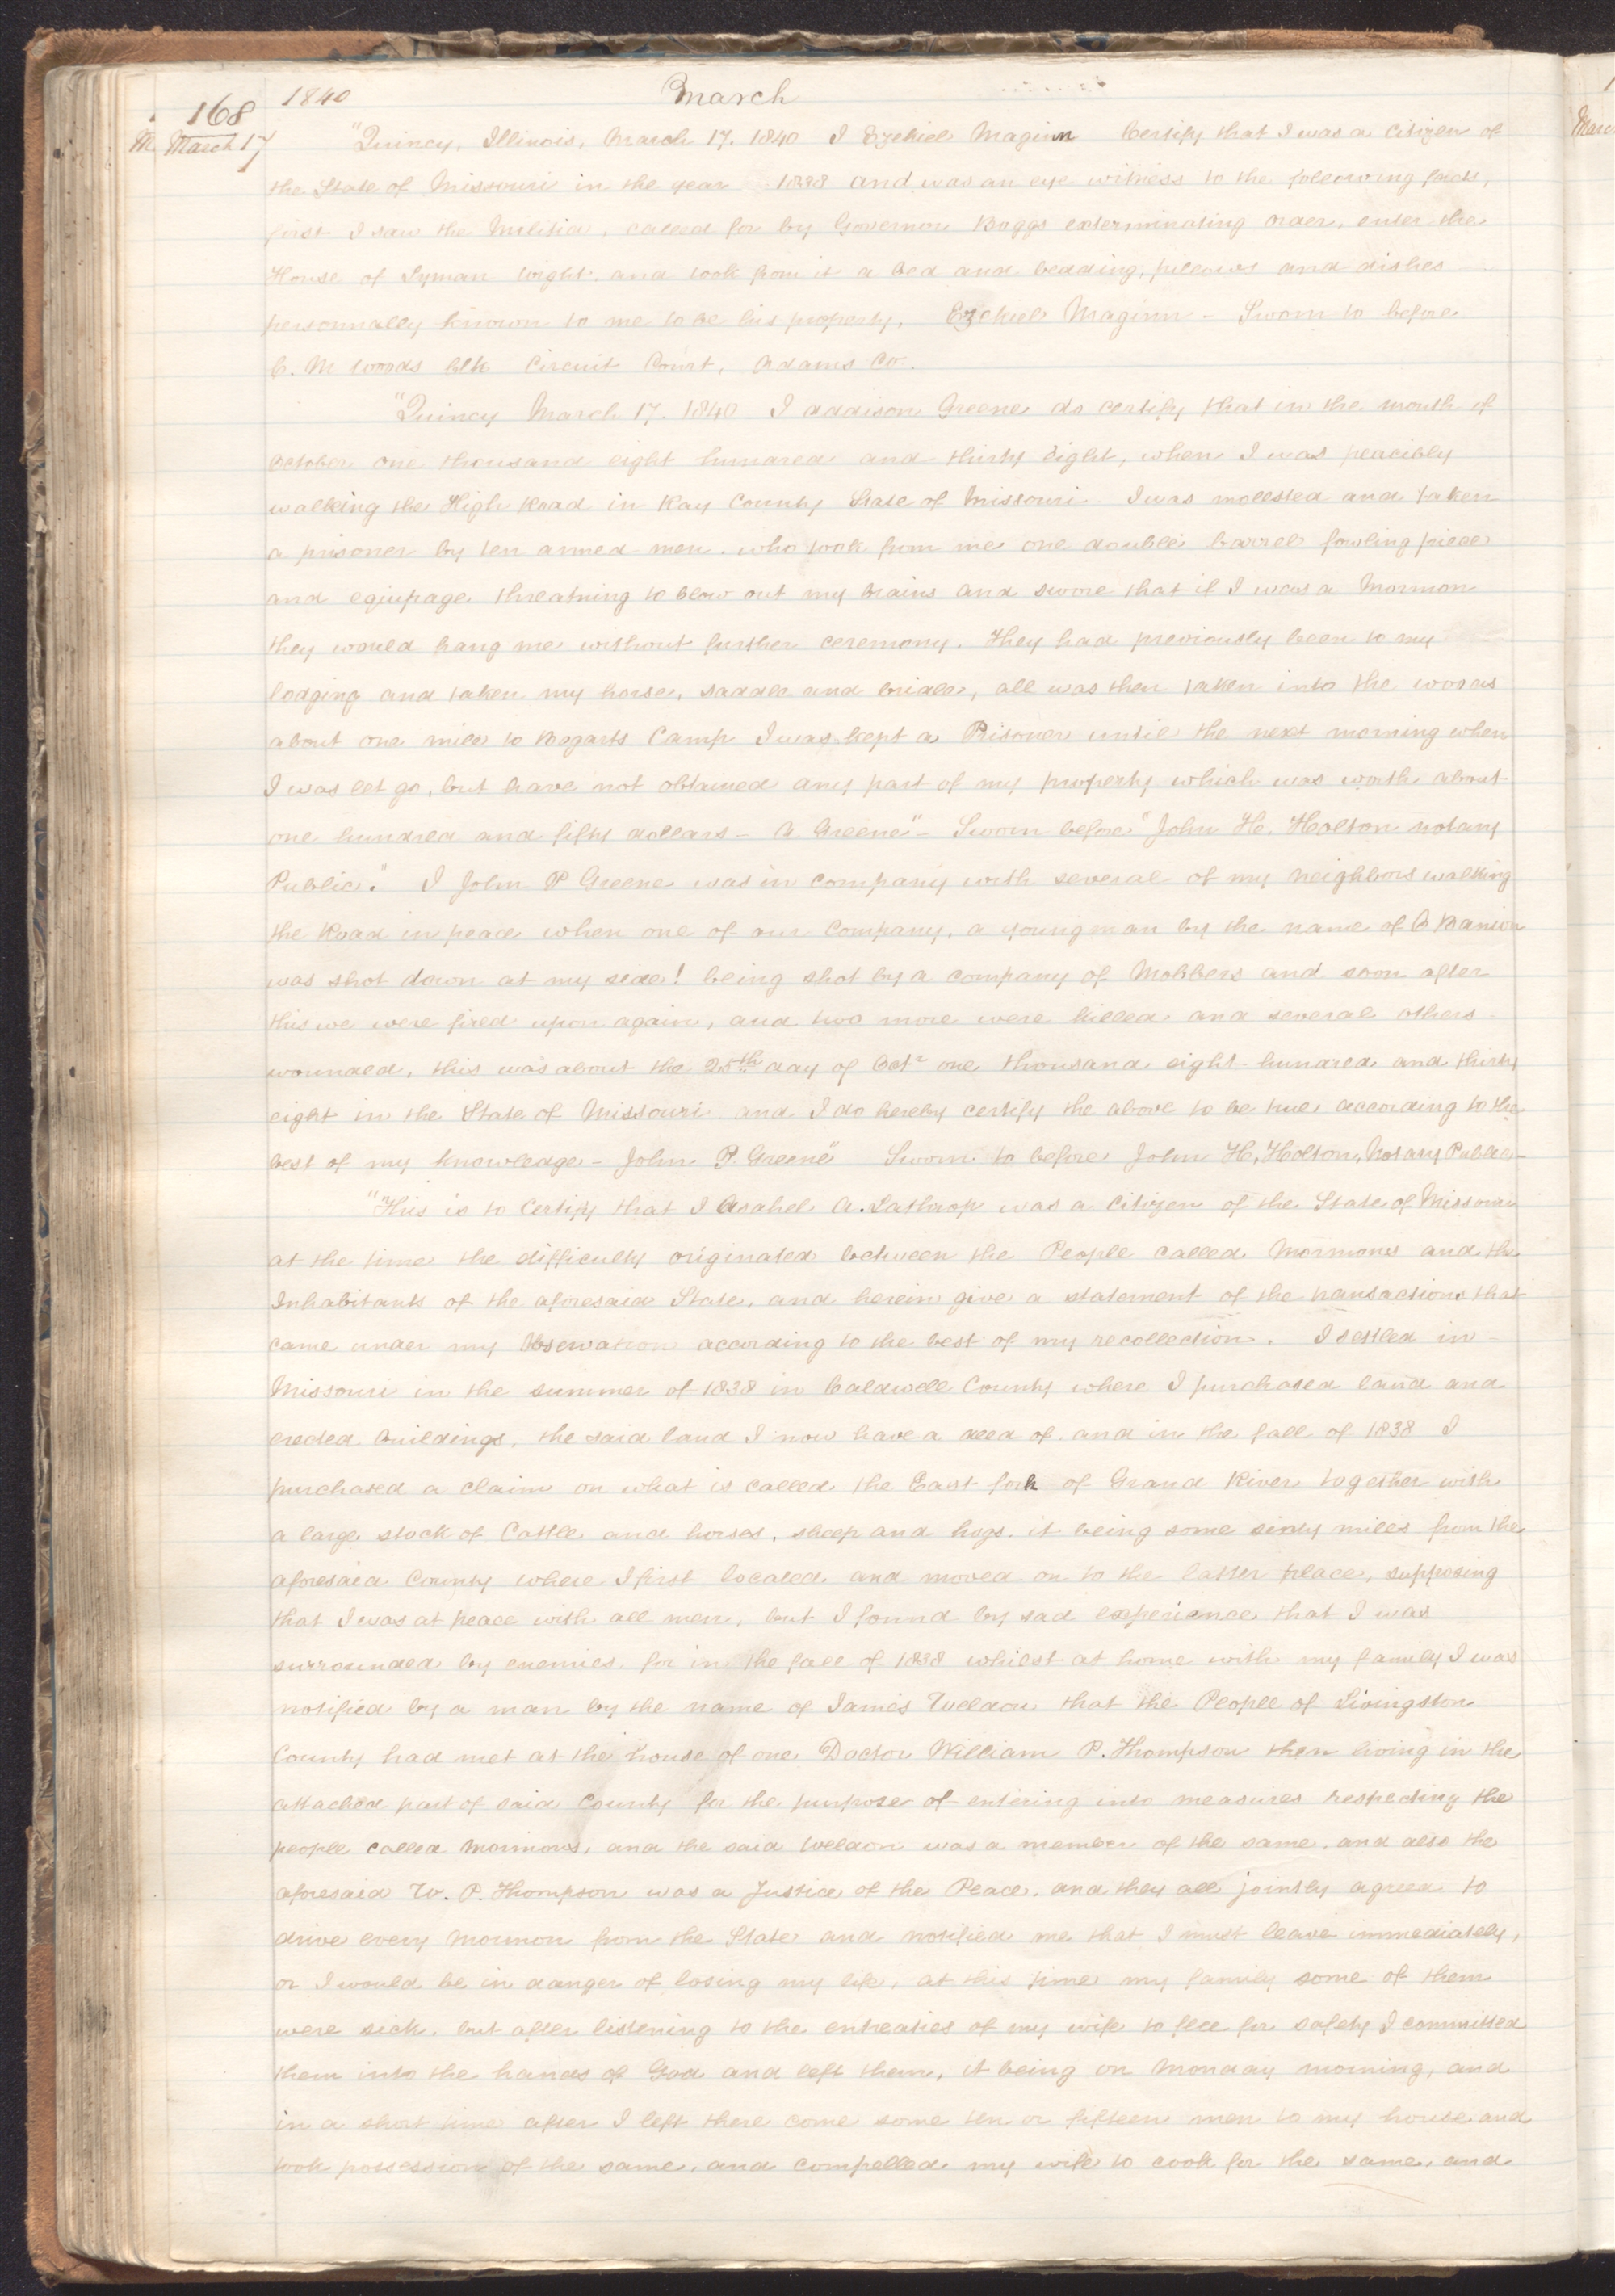 168 1840 March
M March 17 "Quincy, Illinois, March 17. 1840 I Ezekiel Maginn Certify that I was a citizen of
the State of Missouri in the year 1838 and was an eye witness to the following facts,
first I saw the Militia, called for by Governor Boggs exterminating order, enter the
House of Lyman Wight. and took from it a bed and bedding, pillows and dishes
personnally known to me to be his property, Ezekiel Maginn - Sworn to before
C. M Woods Clk Circuit Court, Adams Co.
"Quincy March 17. 1840 I Addison Greene do certify that in the month of
October one thousand eight hundred and thirty eight, when I was peacibly
walking the High Road in Ray County State of Missouri I was molested and taken
a prisoner by ten armed men. who took from me one double barrel fowling piece
and equipage threatning to blow out my brains and swore that if I was a Mormon
they would hang me without further ceremony. They had previously been to my
lodging and taken my horse, saddle and bridle, all was then taken into the woods
about one mile to Bogarts Camp I was kept a Prisoner until the next morning when
I was let go, but have not obtained any part of my property which was worth about
one hundred and fifty dollars - A. Greene" - Sworn before "John H. Holton notary
Public." I John P Greene was in company with several of my neighbors walking
the Road in peace when one of our Company, a young man by the name of O Banion
was shot down at my side! being shot by a company of Mobbers and soon after
this we were fired upon again, and two more were killed and several others
wounded, this was about the 25th day of Octr one thousand eight hundred and thirty
eight in the State of Missouri and I do hereby certify the above to be true according to the
best of my knowledge - John P. Greene" Sworn to before John H. Holton, Notary Public -
"This is to Certify that I Asahel A. Lathrop was a citizen of the State of Missouri
at the time the difficulty originated between the People called Mormons and the
Inhabitants of the aforesaid State, and herein give a statement of the transactions that
came under my Observation according to the best of my recollection. I settled in
Missouri in the summer of 1838 in Caldwell County where I purchased land and
erected buildings, the said land I now have a deed of. and in the fall of 1838 I
purchased a claim on what is called the East fork of Grand River together with
a large stock of Cattle and horses, sheep and hogs. it being some sixty miles from the
aforesaid County where I first located. and moved on to the latter place, supposing
that I was at peace with all men, but I found by sad experience that I was
surrounded by enemies. for in the fall of 1838 whilst at home with my family I was
notified by a man by the name of James Weldon that the People of Livingston
County had met at the house of one Doctor William P. Thompson then living in the
attached part of said County for the purpose of entering into measures respecting the
people called Mormons, and the said Weldon was a member of the same. and also the
aforesaid W. P. Thompson was a Justice of the Peace. and they all jointly agreed to
drive every Mormon from the State and notified me that I must leave immediately,
or I would be in danger of losing my life, at this time my family some of them
were sick. but after listening to the entreaties of my wife to flee for safety I committed
them into the hands of God and left them, it being on Monday morning, and
in a short time after I left there come some ten or fifteen men to my house and
took possession of the same, and compelled my wife to cook for the same, and